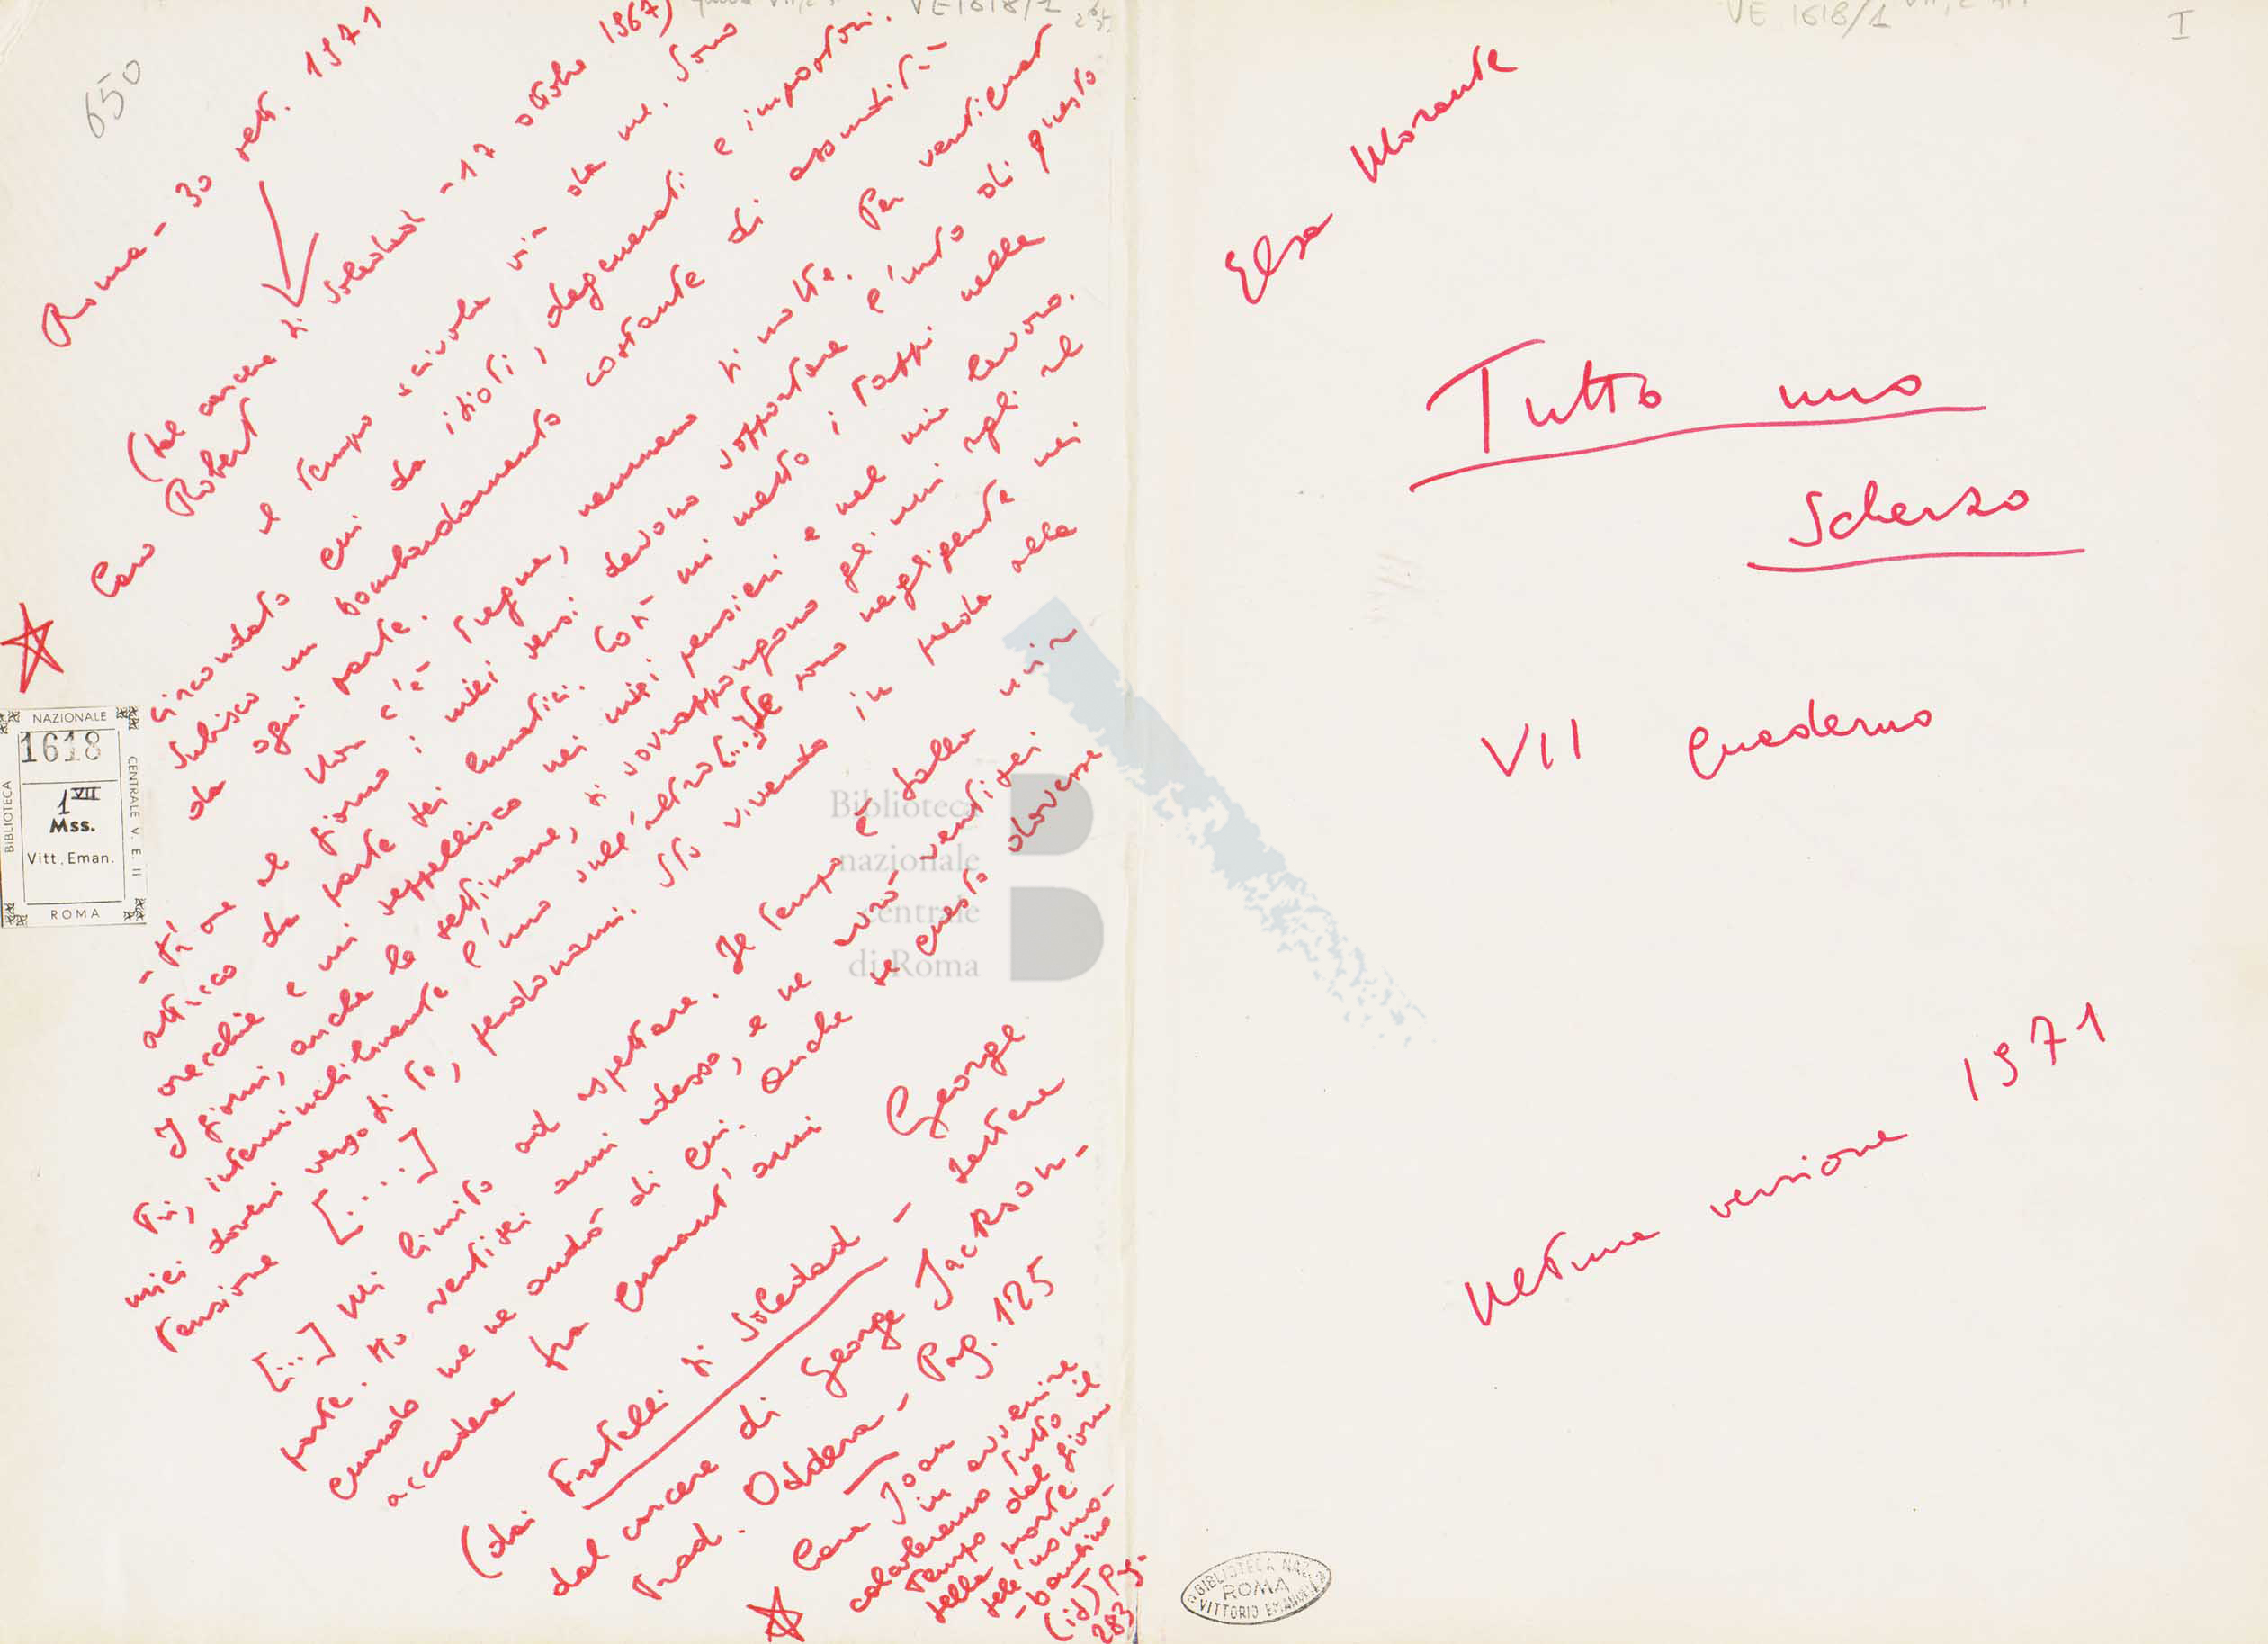 650
VE 1618/1
Roma - 30 sett. 1971
(dal carcere di Soledad - 17 ottobre 1967)
Caro Robert
il tempo scivola via da me. Sono
circondato qui da idioti, degenerati e impostori.
Subisco un bombardamento costante di assurdità
da ogni parte.
Non c'è tregua, nemmeno di notte. Per ventiquat-
-tr'ore al giorno i miei sensi devono sopportare l'urto di questo
attacco da parte dei lunatici. Così mi metto i tappi nelle
orecchie e mi seppellisco nei miei pensieri e nel mio lavoro.
I giorni, anche le settimane, si sovrappongono gli uni agli al-
tri, interminabilmente l'uno sull'altro [...] Se sono negligente nei
miei doveri verso di te, perdonami. Sto vivendo in preda alla
tensione [....]
[...] Mi limito ad aspettare. Il tempo è dalla mia
parte. Ho ventisei anni adesso, e ne avrò ventisei
quando me ne andrò di qui. Anche se questo dovesse
accadere tra quarant'anni
George
(dai Fratelli di Soledad - lettere
dal carcere di George Jackson -
trad. Oddera - Pag. 125
Cara Joan
calcoleremo in avvenire
tutto il
tempo dal giorno
della morte
dell'uomo-
-bambino
(id) pag.
283
BIBLIOTECA NAZIONALE CENTRALE V. E. II
1618
1 VII
Mss.
Vitt. Eman.
ROMA
Biblioteca
nazionale
centrale
di Roma
VE 1618/1
I
Elsa Morante
Tutto uno
scherzo
VII Quaderno
Ultima versione 1971
BIBLIOTECA NAZ.
ROMA
VITTORIO EMANUELE